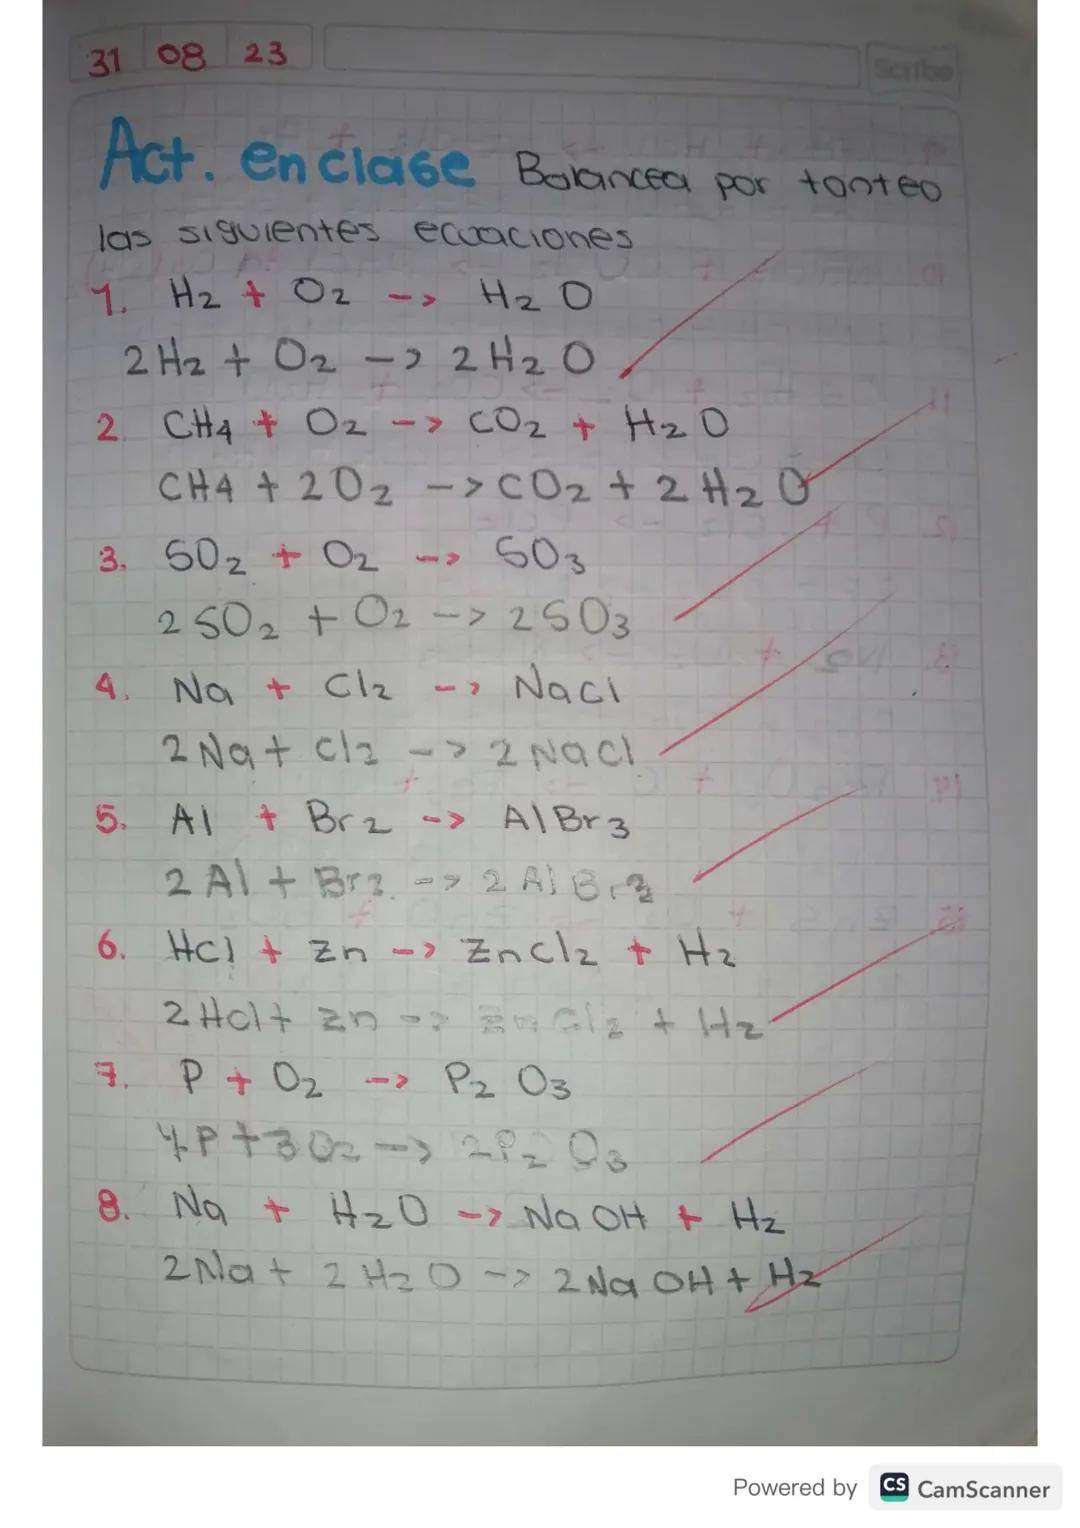 31 08 23
Scribe
Act. en clase Balancea por tanteo
las siguientes ecuaciones
1. H2 + O2 -> H2O
2H2 + O2 -> 2H2O
2 CH4 + O2 -> CO2 + H2O
CH4 + 2O2 -> CO2 + 2H2O
3. SO2 + O2 -> SO3
2SO2 + O2 -> 2SO3
4. Na + Cl2 -> NaCl
2Na + Cl2 -> 2NaCl
5. Al + Br2 -> AlBr3
2Al + Br3 -> 2AlBr3
6. HCl + Zn -> ZnCl2 + H2
2HCl + Zn -> ZnCl2 + H2
7. P + O2 -> P2O3
4P + 3O2 -> 2P2O3
8. Na + H2O -> NaOH + H2
2Na + 2H2O -> 2NaOH + H2
Powered by CS CamScanner